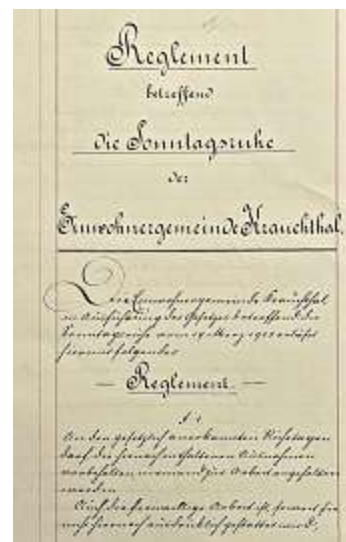 Reglement
betreffend
die Sonntagsruhe
der
Einwohnergemeinde Krauchthal.
Die Einwohnergemeinde Krauchthal
in Ausführung des Gesetzes betreffend die
Sonntagsruhe vom 19. März 1905 erlässt
hiermit folgendes
— Reglement. —
§ 1
An den gesetzlich anerkannten Ruhetagen
darf die hienach enthaltenen Ausnahmen
vorbehalten niemand zur Arbeit angehalten
werden
Auch die freiwillige Arbeit ist, soweit sie
nicht hiernach ausdrücklich gestattet wird,